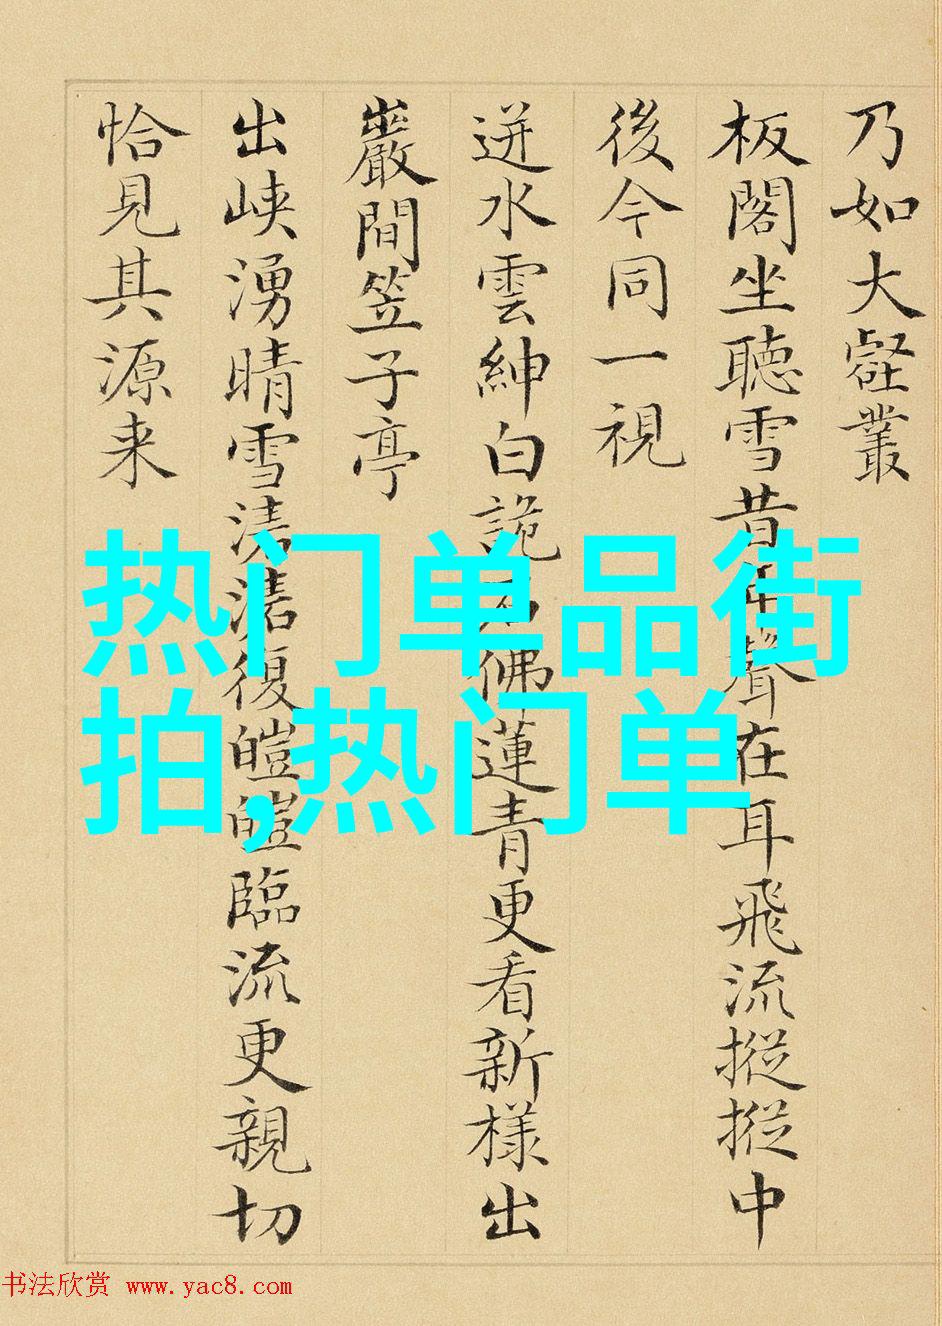 乃如大壑叢
板閣坐聽雪昔年聲在耳飛流摐摐中
後今同一視
迸水雲紳白詭石佛蓮青更看新樣出
巖間笠子亭
出峽湧晴雪復皚皚臨流更親切
恰見其源来
热门单品街
拍,热门单
书法欣赏 www.yac8.com